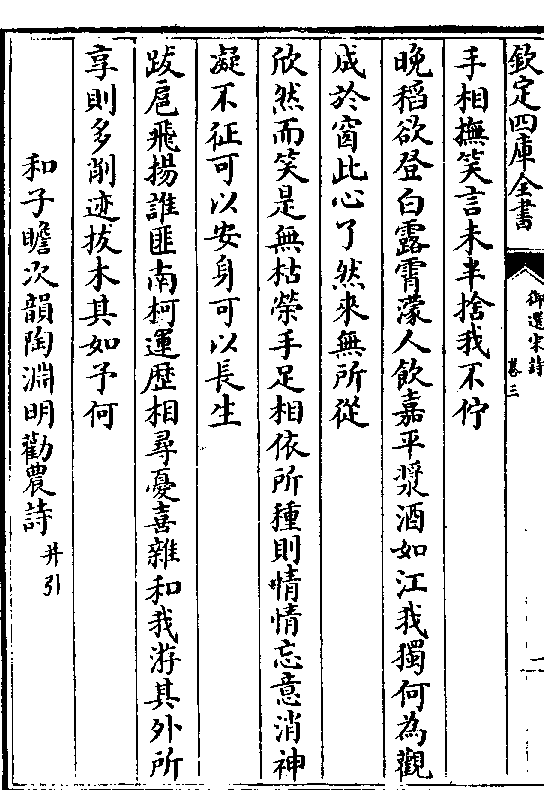 欽定四庫全書
御選宋詩
卷三
手相撫笑言未半捨我不佇
晚稻欲登白露霄濛人飲嘉平漿酒如江我獨何為觀
成於窗此心了然來無所從
欣然而笑是無枯榮手足相依所種則情情忘意消神
凝不征可以安身可以長生
跋扈飛揚誰匪南柯運歴相尋憂喜雜和我游其外所
享則多削迹拔木其如予何
和子瞻次韻陶淵明勸農詩
并引